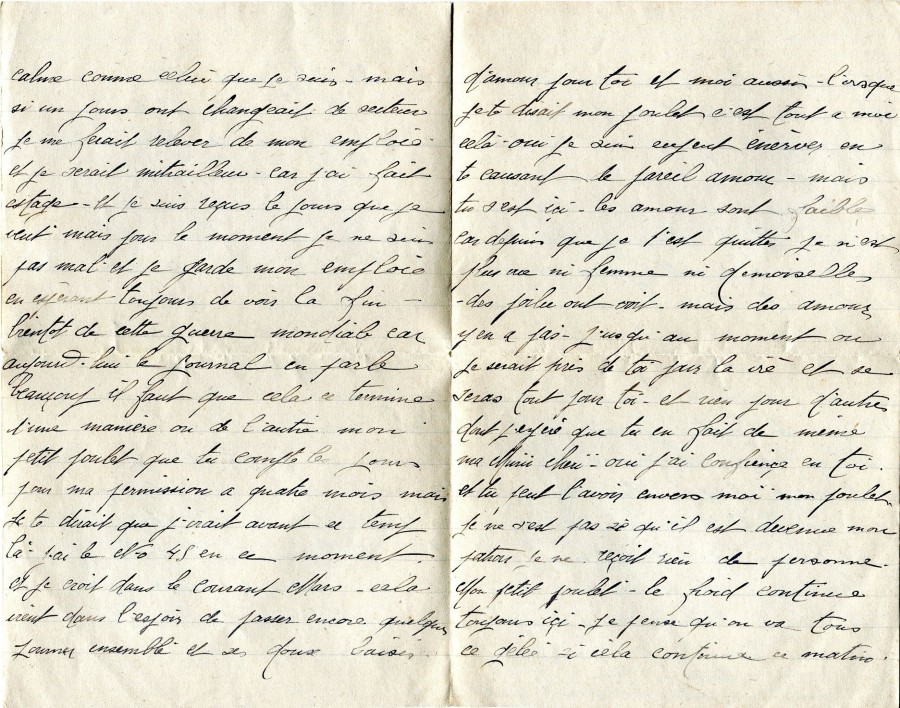 calme comme celui que je suis - mais
si un jours ont changeait de secteur
je me ferait relever de mon emploie
et je serait mitrailleur - car j'ai fait
estage - et je suis reçus le jours que je
veut mais pour le moment je ne suis
pas mal et je garde mon emploie
en espérant toujours de voir la fin -
bientot de cette guerre mondiale car
aujourd-hui le journal en parle
beaucoup il faut que cela ce termine
d'une manière ou de l'autre mon
petit poulet que tu compte les jours
pour ma permission a quatre mois mais
je te dirait que j'irait avant ce temp
là - j'ai le No 45 en ce moment.
et je croit dans le courant Mars - cela
vient dans l'espoir de passer encore quelques
journer ensemble et ses doux baiser -
d'amour pour toi et moi aussi - l'orsque
je te disait mon poulet c'est tout a moi
cela - oui je suis énerver en
te causant le pareil amour - mais
tu s'est içi - les amour sont faibles
car depuis que je t'est quitter je n'est
plus vue ni femme ni demoiselles
- des jolies ont voit - mais des amour
y en a pas - jusqu'au moment ou
je serait près de toi pour la vie et se
seras tout pour toi - et rien pour d'autres
dont j'espère que tu en fait de meme
ma Mimi cheri - oui j'ai confiençe en toi.
et tu peut l'avoir envers moi mon poulet
je ne s'est pas se qu'il est devenue mon
patron je ne reçoit rien de personne -
Mon petit poulet - le froid continue
toujours içi - je pense qu'on va tous
ce gélée si cela continue ce matin.